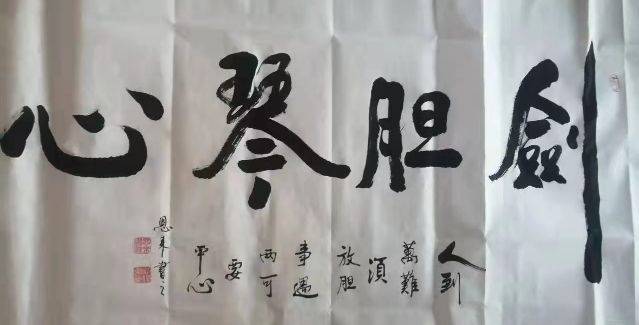 劍胆琴心
人到
萬難
須
放胆
事遇
两可
要
平心
恩来書之